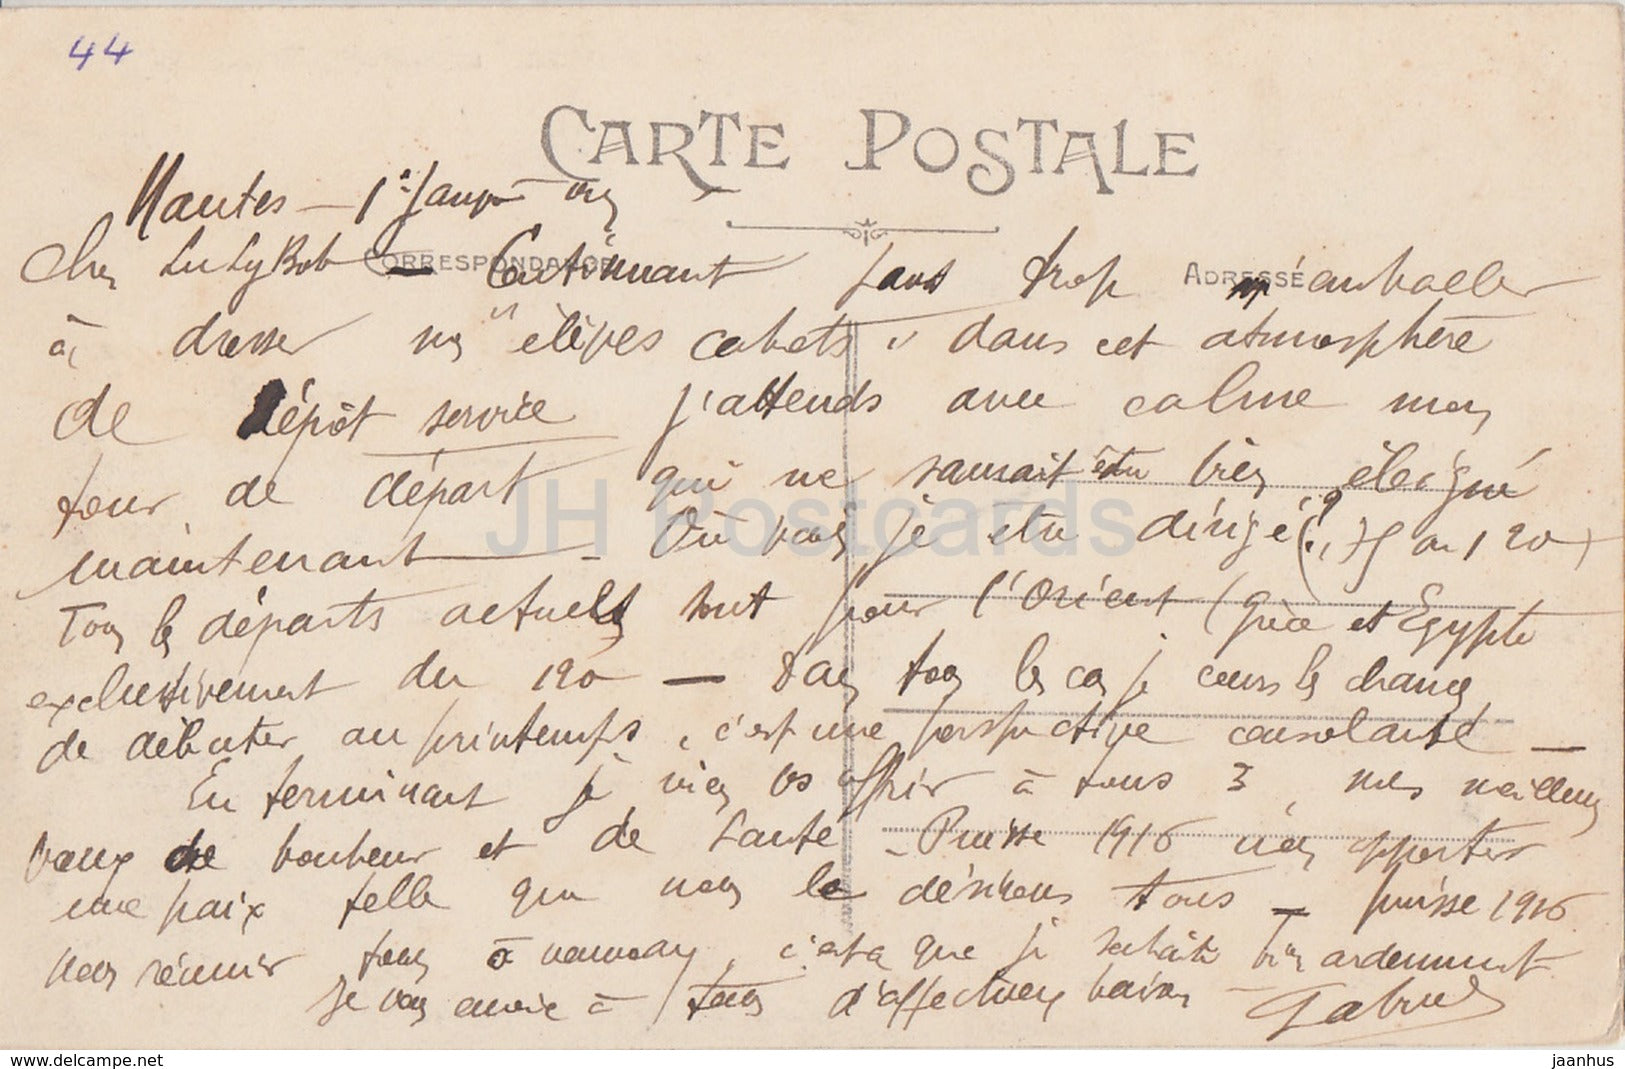 44
CARTE POSTALE
Nantes – 1er Janv
CORRESPONDANCE
ADRESSE
Cher LuLyBob — Continuant sans trop
à dresser nos "élèves cabots", dans cet atmosphère
de dépôt service j'attends avec calme mon
tour de départ qui ne saurait être bien éloigné
maintenant – Où vais je être dirigé (?, 75 ou 120)
Tous les départs actuels sont pour l'Orient (Grèce et Egypte
exclusivement du 120 — Dans tous les cas je cours les chances
de débuter au printemps, c'est une perspective consolante —
En terminant je viens vs offrir à tous 3, mes meilleurs
vœux de bonheur et de santé – Puisse 1916 nous apporter
une paix telle que nous le désirons tous – puisse 1916
nous réunir tous à nouveau, c'est ce que je souhaite bien ardemment
Je vous envoie à tous d'affectueux baisers – Gabriel
JH Postcards
www.delcampe.net
jaanhus